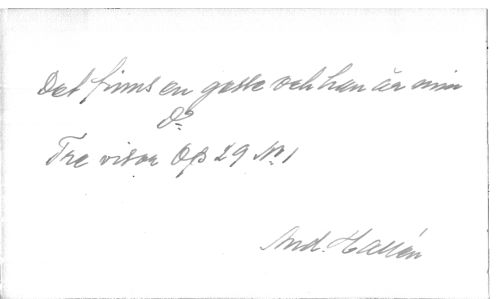 Det finns en gosse och han är min
Do
Tre visor Op 29 No 1
And. Hallén